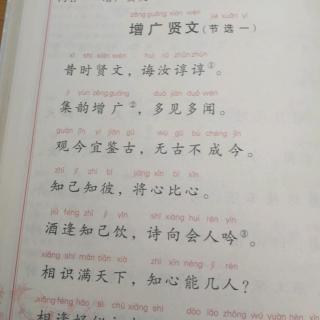 zēng guǎng xián wén jié xuǎn yī
增广贤文(节选一)
xī shí xián wén huì rǔ zhūn zhūn
昔时贤文，诲汝谆谆①。
jí yùn zēng guǎng duō jiàn duō wén
集韵增广②，多见多闻。
guān jīn yí jiàn gǔ wú gǔ bù chéng jīn
观今宜鉴古，无古不成今。
zhī jǐ zhī bǐ jiāng xīn bǐ xīn
知己知彼，将心比心。
jiǔ féng zhī jǐ yǐn shī xiàng huì rén yín
酒逢知己饮，诗向会人吟③。
xiāng shí mǎn tiān xià zhī xīn néng jǐ rén
相识满天下，知心能几人？
xiāng féng hǎo sì chū xiāng shí dào lǎo
相逢好似